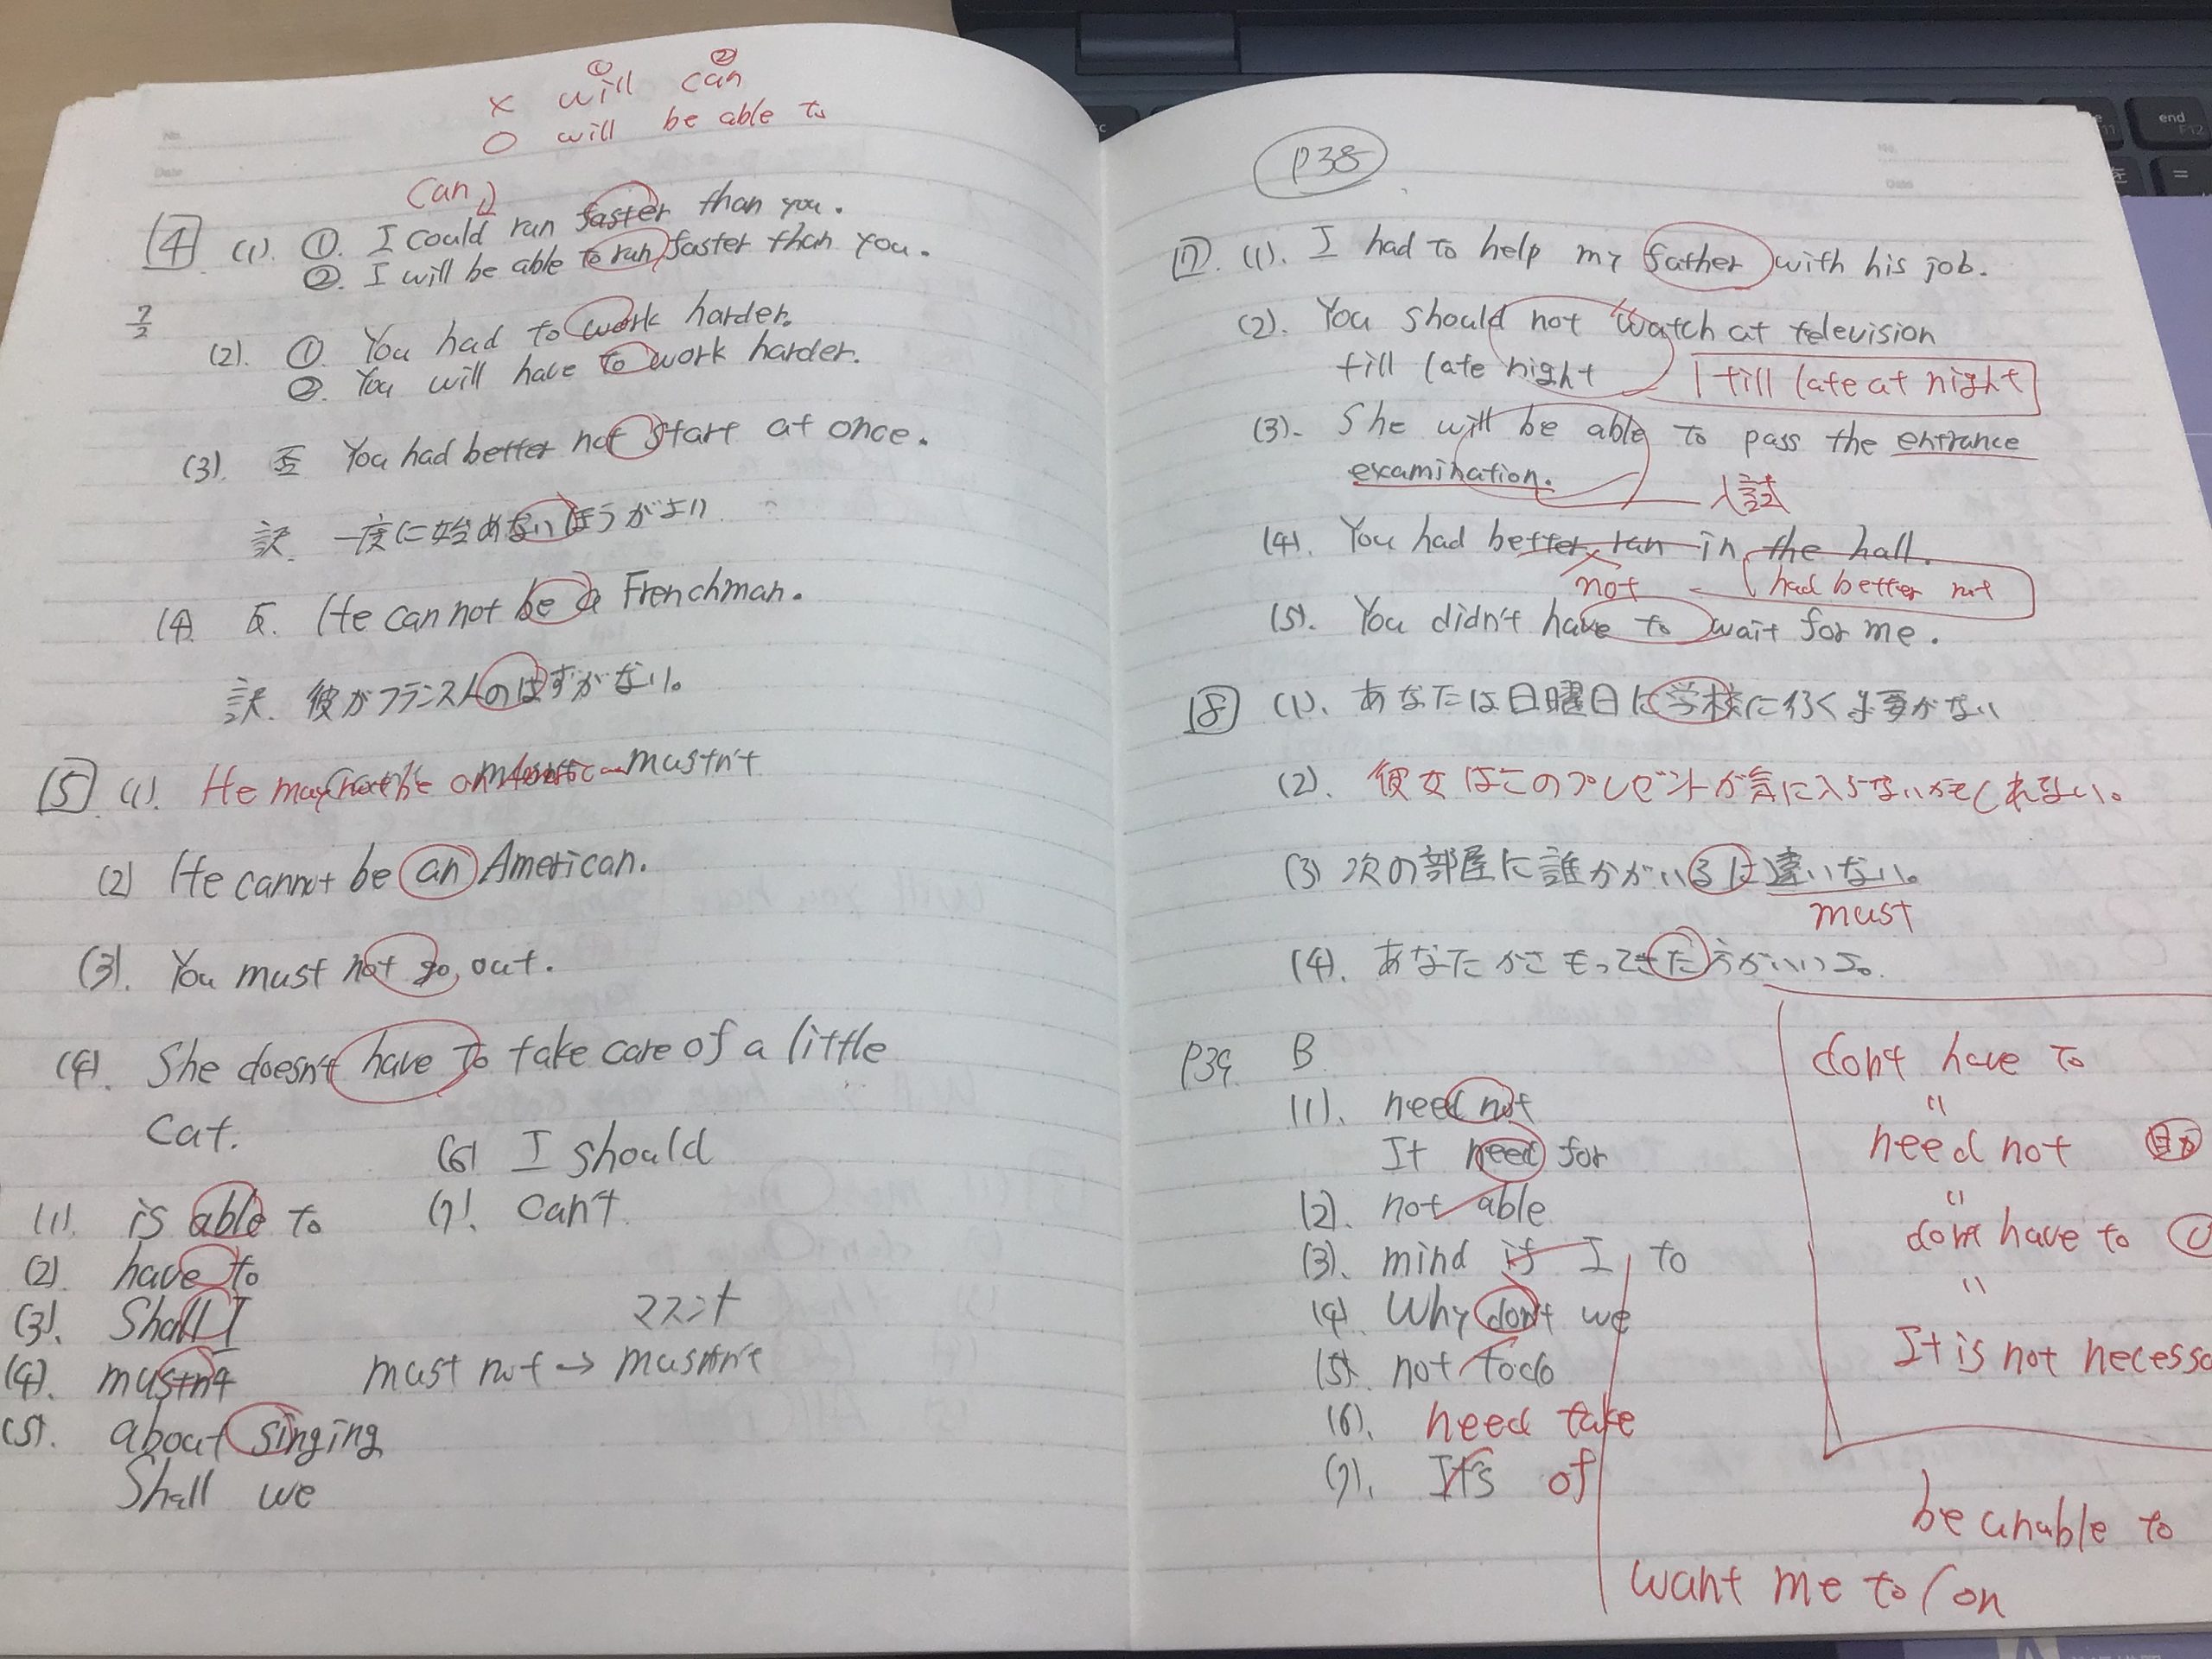 ① ②
× will can
○ will be able to
can
4 (1) ①. I could run faster than you.
②. I will be able to run faster than you.
(2). ① You had to work harder.
② You will have to work harder.
(3). 否 You had better not start at once.
訳 一度に始めないほうがよい
(4) 否. He can not be a Frenchman.
訳. 彼がフランス人のはずがない。
5 (1). He may mustn't
(2) He cannot be an American.
(3). You must not go out.
(4). She doesn't have to take care of a little
cat.
(6) I should
(1). is able to (7). can't
(2) have to
(3). Shall I マスント
(4). mustn't must not → mustn't
(5). about singing
Shall we
P38
7. (1). I had to help my father with his job.
(2). You should not watch at television
till late night till late at night
(3). She will be able to pass the entrance
examination. 入試
(4). You had better run in the hall.
not had better not
(5). You didn't have to wait for me.
8 (1). あなたは日曜日に学校に行く必要がない
(2). 彼女はこのプレゼントが気に入らないかもしれない。
(3) 次の部屋に誰かがいるに違いない。
must
(4). あなたかさもってきた方がいいよ。
P39 B
(1). need not
It need for
(2). not able
(3). mind if I to
(4). Why don't we
(5). not to do
(6). need take
(7). It's of
don't have to
"
need not
"
don't have to
"
It is not necess
be unable to
want me to / on